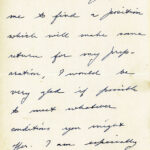 me to find a position
which will make some
return for my prep-
aration, I would be
very glad if possible
to meet whatever
conditions you might
offer. I am especially